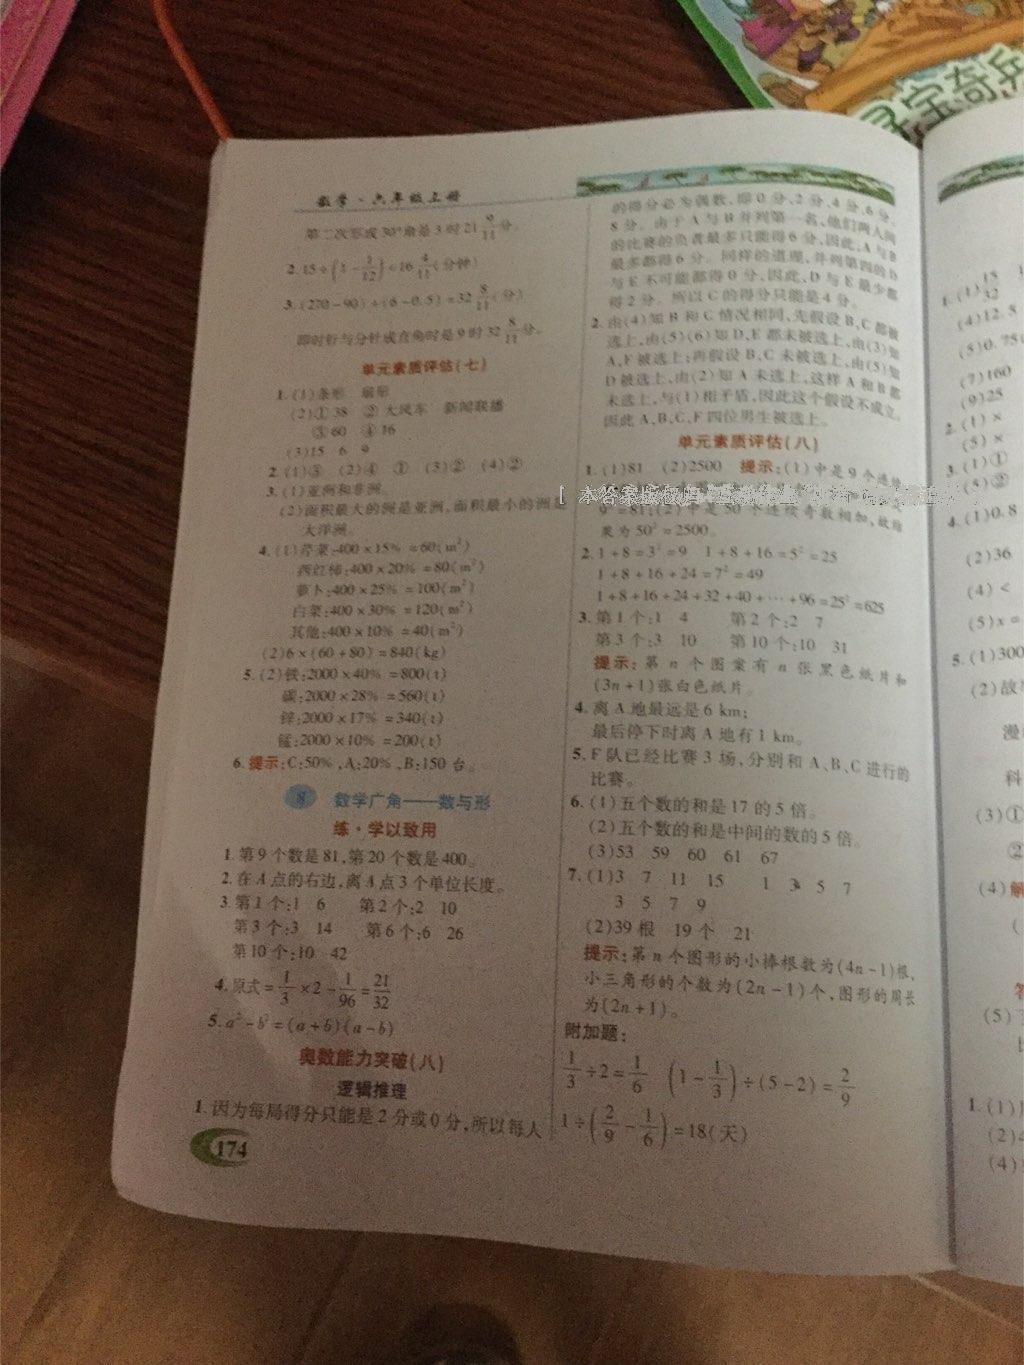 寻宝奇兵
数学·六年级上册
第二次形成30°角是3时21 9/11分。
2. 15÷(1-1/12)=16 4/11(分钟)
3. (270-90)÷(6-0.5)=32 8/11(分)
即时针与分针成直角时是9时32 8/11分。
单元素质评估(七)
1. (1)条形 扇形
(2)①38 ②大风车 新闻联播
③60 ④16
(3)15 6 9
2. (1)③ (2)④ ① (3)② (4)②
3. (1)亚洲和非洲。
(2)面积最大的洲是亚洲,面积最小的洲是
大洋洲。
4. (1)芹菜:400×15% =60(m²)
西红柿:400×20% =80(m²)
萝卜:400×25% =100(m²)
白菜:400×30% =120(m²)
其他:400×10% =40(m²)
(2)6×(60+80)=840(kg)
5. (2)铁:2000×40% =800(t)
碳:2000×28% =560(t)
锌:2000×17% =340(t)
锰:2000×10% =200(t)
6. 提示:C:50%,A:20%,B:150台。
8 数学广角——数与形
练·学以致用
1. 第9个数是81,第20个数是400。
2. 在A点的右边,离A点3个单位长度。
3. 第1个:1 6 第2个:2 10
第3个:3 14 第6个:6 26
第10个:10 42
4. 原式=1/3×2-1/96=21/32
5. a²-b²=(a+b)(a-b)
奥数能力突破(八)
逻辑推理
1. 因为每局得分只能是2分或0分,所以每人
174
的得分必为偶数,即0分,2分,4分,6分,
8分。由于A与B并列第一名,他们两人间
的比赛的负者最多只能得6分,因此,A与B
最多都得6分。同样的道理,并列第四的D
与E不可能都得0分,因此,D与E最少都
得2分。所以C的得分只能是4分。
2. 由(4)知B和C情况相同,先假设B,C都被
选上,由(5)(6)知D,E都未被选上,由(3)知
A,F被选上;再假设B,C未被选上,由(5)知
D被选上,由(2)知A未选上,这样A和B都
未选上,与(1)相矛盾,因此这个假设不成立。
因此A,B,C,F四位男生被选上。
单元素质评估(八)
1. (1)81 (2)2500 提示:(1)中是9个连续
本答案版权归
9²=81;(2)中是50个连续奇数相加,故结
果为50²=2500。
2. 1+8=3²=9 1+8+16=5²=25
1+8+16+24=7²=49
1+8+16+24+32+40+…+96=25²=625
3. 第1个:1 4 第2个:2 7
第3个:3 10 第10个:10 31
提示:第n个图案有n张黑色纸片和
(3n+1)张白色纸片。
4. 离A地最远是6 km;
最后停下时离A地有1 km。
5. F队已经比赛3场,分别和A、B、C进行的
比赛。
6. (1)五个数的和是17的5倍。
(2)五个数的和是中间的数的5倍。
(3)53 59 60 61 67
7. (1)3 7 11 15 1 3 5 7
3 5 7 9
(2)39根 19个 21
提示:第n个图形的小棒根数为(4n-1)根,
小三角形的个数为(2n-1)个,图形的周长
为(2n+1)。
附加题:
1/3÷2=1/6 (1-1/3)÷(5-2)=2/9
1÷(2/9-1/6)=18(天)
1. (1)15/32
(4)12.5
(5)0.75
(7)160
(9)25
2. (1)×
(5)×
3. (1)①
(5)②
4. (1)0.8
(2)36
(4)<
(5)x=
5. (1)300
(2)故
漫
科
(3)①
②
(4)解
(
答
(5)
1. (1)
(2)
(4)